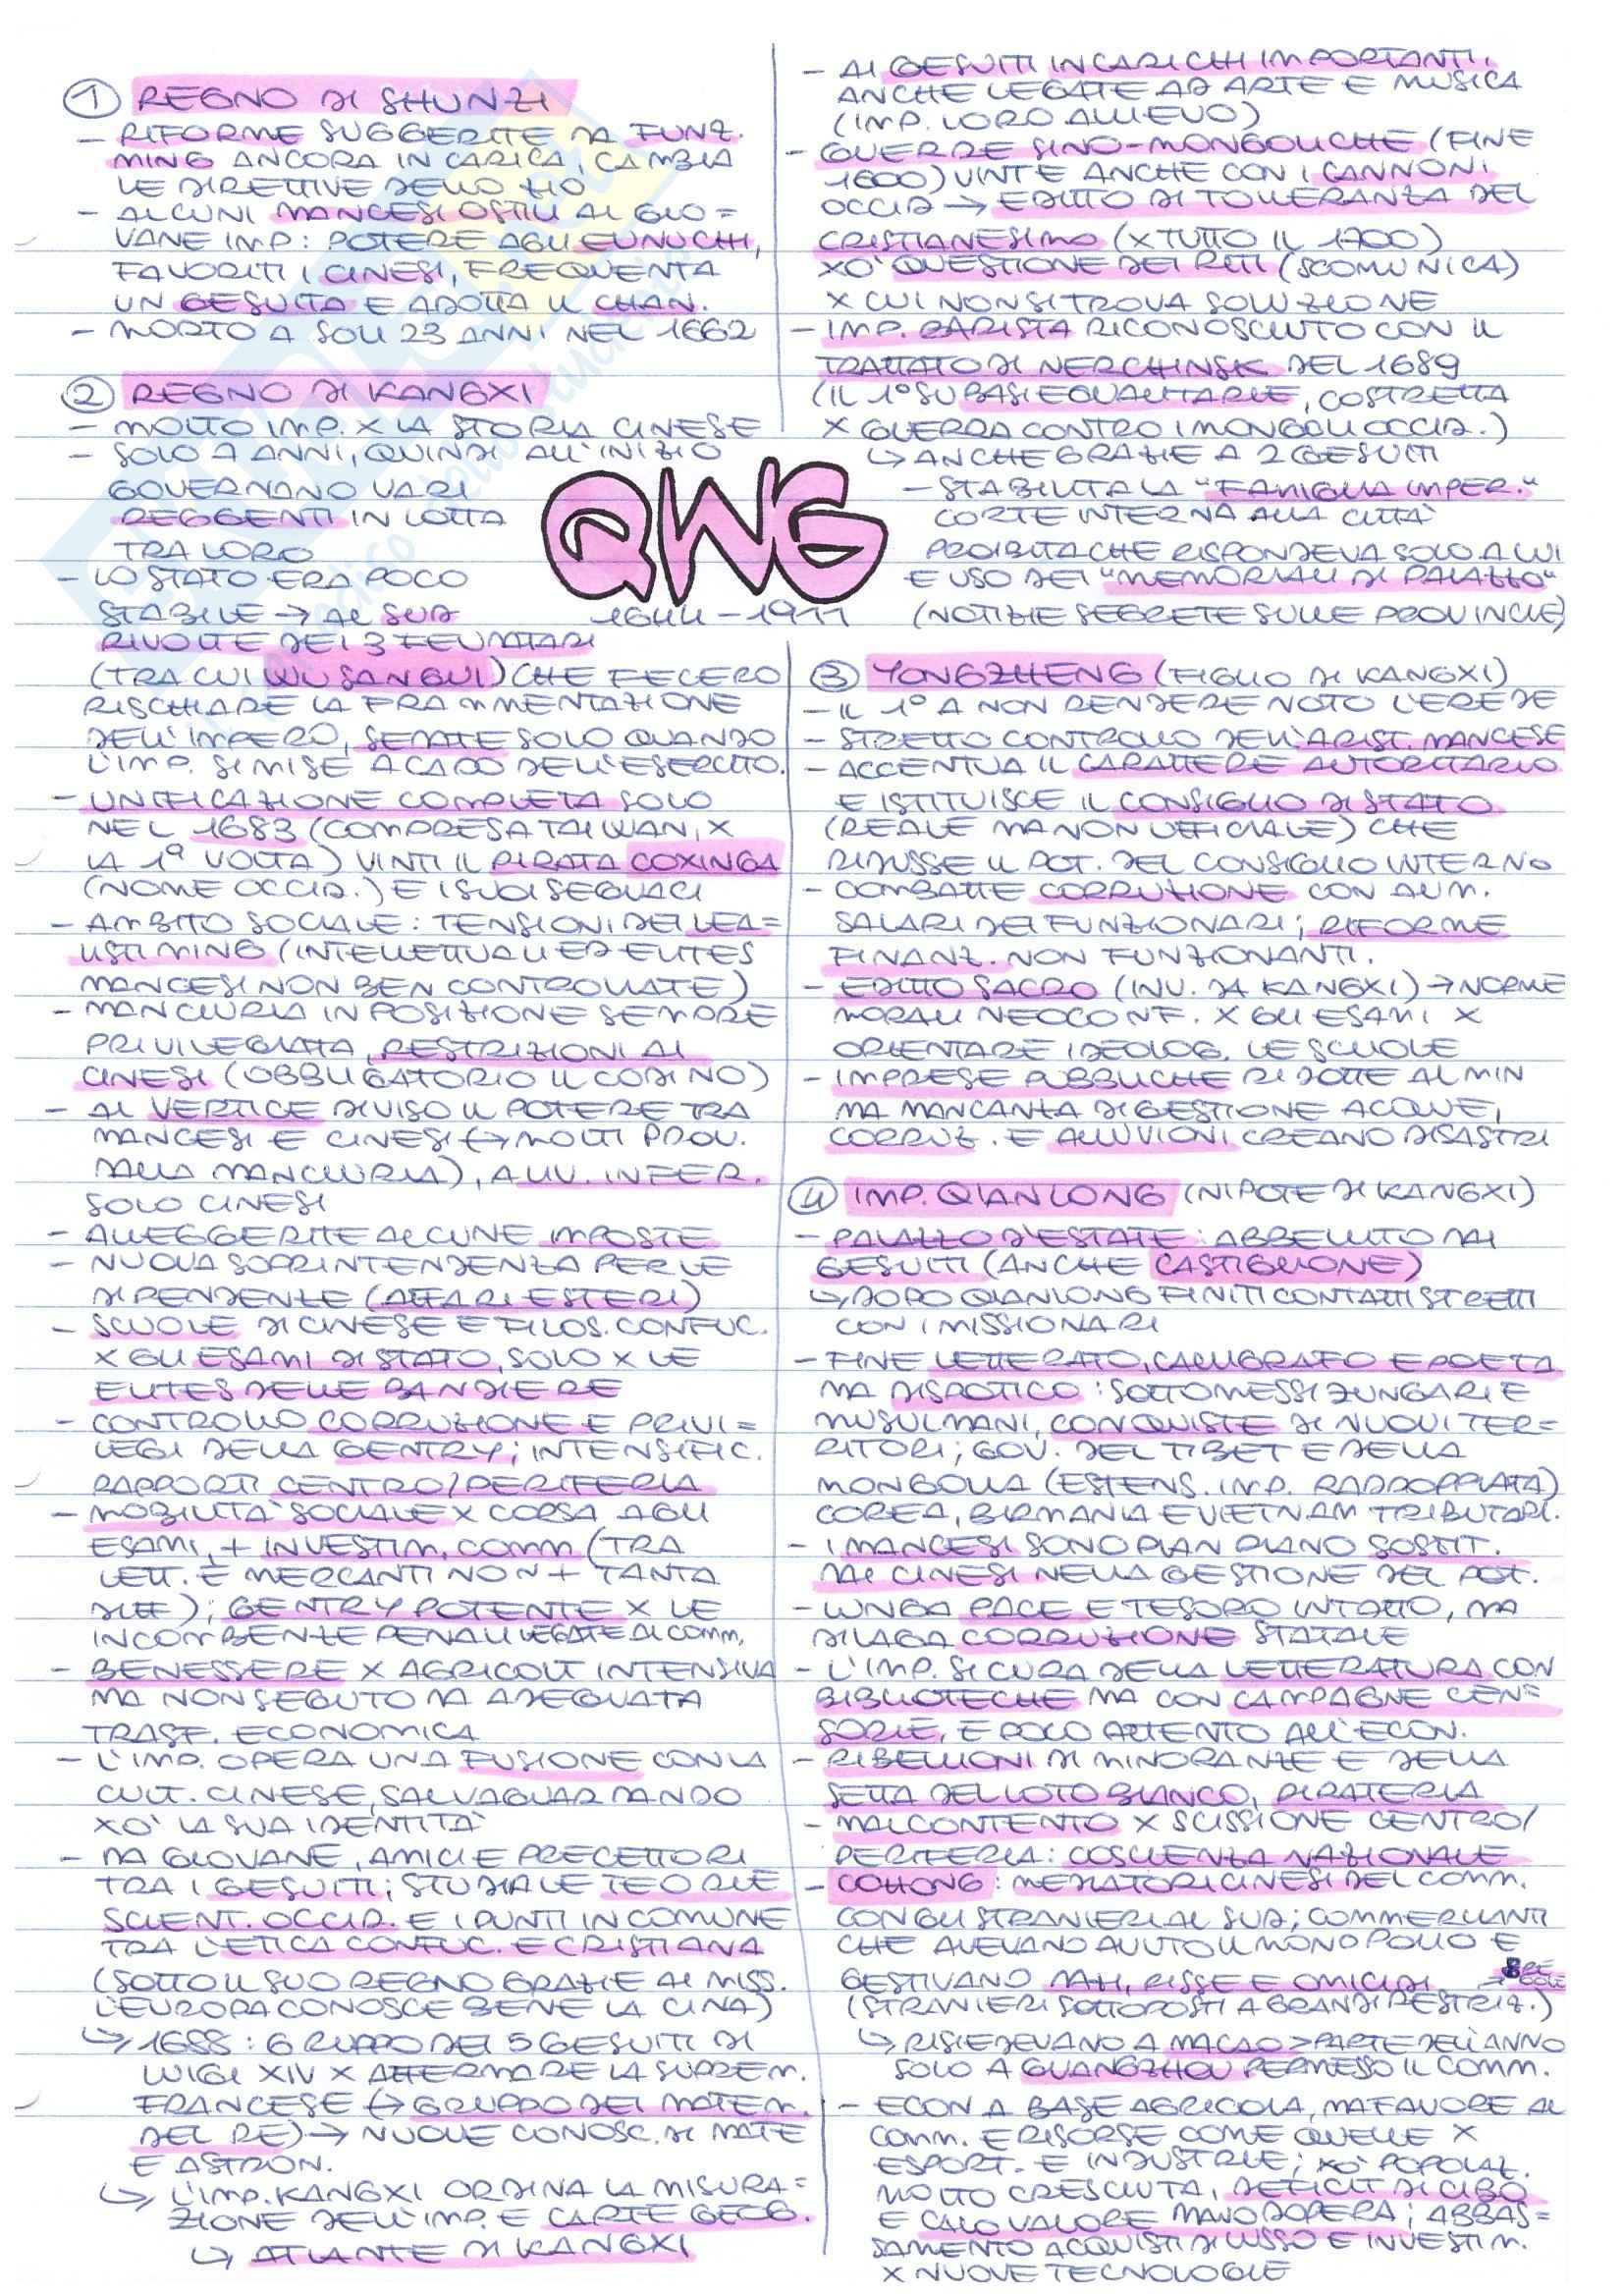 ① REGNO DI SHUNZI
- RIFORME SUGGERITE DA FUNZ.
MING ANCORA IN CARICA, CAMBIA
LE DIRETTIVE DELLO ZIO
- ALCUNI MANCESI OSTILI AL GIO=
VANE IMP: POTERE AGLI EUNUCHI,
FAVORITI I CINESI, FREQUENTA
UN GESUITA E ADOTTA IL CHAN.
- MORTO A SOLI 23 ANNI NEL 1662
② REGNO DI KANGXI
- MOLTO IMP. X LA STORIA CINESE
- SOLO 7 ANNI, QUINDI ALL'INIZIO
GOVERNANO VARI
REGGENTI IN LOTTA
TRA LORO
- LO STATO ERA POCO
STABILE → AL SUD
RIVOLTE DEI 3 FEUDATARI
(TRA CUI WU SANGUI) CHE FECERO
RISCHIARE LA FRAMMENTAZIONE
DELL'IMPERO, SEDATE SOLO QUANDO
L'IMP. SI MISE A CAPO DELL'ESERCITO.
- UNIFICAZIONE COMPLETA SOLO
NEL 1683 (COMPRESA TAIWAN, X
LA 1ª VOLTA) VINTI IL PIRATA COXINGA
(NOME OCCID.) E I SUOI SEGUACI
- AMBITO SOCIALE: TENSIONI DEI LEA=
LISTI MING (INTELLETTUALI ED ELITES
MANCESI NON BEN CONTROLLATE)
- MANCIURIA IN POSIZIONE SEMPRE
PRIVILEGIATA, RESTRIZIONI AI
CINESI (OBBLIGATORIO IL CODINO)
- AL VERTICE DIVISO IL POTERE TRA
MANCESI E CINESI (→ MOLTI PROV.
DALLA MANCIURIA), A LIV. INFER.
SOLO CINESI
- ALLEGGERITE ALCUNE IMPOSTE
- NUOVA SOPRINTENDENZA PER LE
DIPENDENZE (AFFARI ESTERI)
- SCUOLE DI CINESE E FILOS. CONFUC.
X GLI ESAMI DI STATO, SOLO X LE
ELITES DELLE BANDIERE
- CONTROLLO CORRUZIONE E PRIVI=
LEGI DELLA GENTRY; INTENSIFIC.
RAPPORTI CENTRO/PERIFERIA
- MOBILITÀ SOCIALE X CORSA AGLI
ESAMI, + INVESTIM. COMM (TRA
LETT. E MERCANTI NON + TANTA
DIFF); GENTRY POTENTE X LE
INCOMBENZE PENALI LEGATE AL COMM.
- BENESSERE X AGRICOLT INTENSIVA
MA NON SEGUITO DA ADEGUATA
TRASF. ECONOMICA
- L'IMP. OPERA UNA FUSIONE CON LA
CULT. CINESE, SALVAGUARDANDO
XO' LA SUA IDENTITÀ
- DA GIOVANE, AMICI E PRECETTORI
TRA I GESUITI; STUDIA LE TEORIE
SCIENT. OCCID. E I PUNTI IN COMUNE
TRA L'ETICA CONFUC. E CRISTIANA
(SOTTO IL SUO REGNO GRAZIE AI MISS.
L'EUROPA CONOSCE BENE LA CINA)
↳ 1688: GRUPPO DEI 5 GESUITI DI
LUIGI XIV X AFFERMARE LA SUPREM.
FRANCESE (→ GRUPPO DEI MATEM.
DEL RE) → NUOVE CONOSC. DI MATE
E ASTRON.
↳ L'IMP. KANGXI ORDINA LA MISURA=
ZIONE DELL'IMP. E CARTE GEOG.
↳ ATLANTE DI KANGXI
QING
1644 - 1911
- AI GESUITI INCARICHI IMPORTANTI,
ANCHE LEGATE AD ARTE E MUSICA
(IMP. LORO ALLIEVO)
- GUERRE SINO-MONGOLICHE (FINE
1600) VINTE ANCHE CON I CANNONI
OCCID → EDITTO DI TOLLERANZA DEL
CRISTIANESIMO (X TUTTO IL 1700)
XO' QUESTIONE DEI RITI (SCOMUNICA)
X CUI NON SI TROVA SOLUZIONE
- IMP. ZARISTA RICONOSCIUTO CON IL
TRATTATO DI NERCHINSK DEL 1689
(IL 1° SU BASI EGUALITARIE, COSTRETTA
X GUERRA CONTRO I MONGOLI OCCID.)
↳ ANCHE GRAZIE A 2 GESUITI
- STABILITA LA "FAMIGLIA IMPER."
CORTE INTERNA ALLA CITTÀ
PROIBITA CHE RISPONDEVA SOLO A LUI
E USO DEI "MEMORIALI DI PALAZZO"
(NOTIZIE SEGRETE SULLE PROVINCIE)
③ YONGZHENG (FIGLIO DI KANGXI)
- IL 1° A NON RENDERE NOTO L'EREDE
- STRETTO CONTROLLO DELL'ARIST. MANCESE
- ACCENTUA IL CARATTERE AUTORITARIO
E ISTITUISCE IL CONSIGLIO DI STATO
(REALE MA NON UFFICIALE) CHE
RIDUSSE IL POT. DEL CONSIGLIO INTERNO
- COMBATTE CORRUZIONE CON AUM.
SALARI DEI FUNZIONARI; RIFORME
FINANZ. NON FUNZIONANTI.
- EDITTO SACRO (INV. DA KANGXI) → NORME
MORALI NEOCONF. X GLI ESAMI X
ORIENTARE IDEOLOG. LE SCUOLE
- IMPRESE PUBBLICHE RIDOTTE AL MIN
MA MANCANZA DI GESTIONE ACQUE,
CORRUZ. E ALLUVIONI CREANO DISASTRI
④ IMP. QIANLONG (NIPOTE DI KANGXI)
- PALAZZO D'ESTATE: ABBELLITO DAI
GESUITI (ANCHE CASTIGLIONE)
↳ DOPO QIANLONG FINITI CONTATTI STRETTI
CON I MISSIONARI
- FINE LETTERATO, CALLIGRAFO E POETA
MA DISPOTICO: SOTTOMESSI ZUNGARI E
MUSULMANI, CONQUISTE DI NUOVI TER=
RITORI; GOV. DEL TIBET E DELLA
MONGOLIA (ESTENS. IMP. RADDOPPIATA)
COREA, BIRMANIA E VIETNAM TRIBUTARI.
- I MANCESI SONO PIAN PIANO SOSTIT.
DAI CINESI NELLA GESTIONE DEL POT.
- LUNGA PACE E TESORO INTATTO, MA
DILAGA CORRUZIONE STATALE
- L'IMP. SI CURA DELLA LETTERATURA CON
BIBLIOTECHE MA CON CAMPAGNE CEN=
SORIE, E POCO ATTENTO ALL'ECON.
- RIBELLIONI DI MINORANZE E DELLA
SETTA DEL LOTO BIANCO, PIRATERIA
- MALCONTENTO X SCISSIONE CENTRO/
PERIFERIA: COSCIENZA NAZIONALE
- COHONG: MEDIATORI CINESI DEL COMM.
CON GLI STRANIERI AL SUD; COMMERCIANTI
CHE AVEVANO AVUTO IL MONOPOLIO E
GESTIVANO DAZI, RISSE E OMICIDI → 8 REGOLE
(STRANIERI SOTTOPOSTI A GRANDI RESTRIZ.)
↳ RISIEDEVANO A MACAO > PARTE DELL'ANNO
SOLO A GUANGZHOU PERMESSO IL COMM.
- ECON A BASE AGRICOLA, MA FAVORE AL
COMM. E RISORSE COME QUELLE X
ESPORT. E INDUSTRIE; XO' POPOLAZ.
MOLTO CRESCIUTA, DEFICIT DI CIBO
E CALO VALORE MANODOPERA; ABBAS=
SAMENTO ACQUISTI DI LUSSO E INVESTIM.
X NUOVE TECNOLOGIE